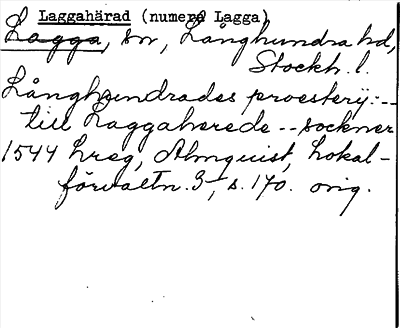 Laggahärad (numera Lagga)
Lagga, sn, Långhundra hd,
Stockh. l.
Långhundrades proesterij: --
till Laggaherede -- sockner
1544 hreg, Almquist, Lokal-
förvaltn. 3, s. 170. orig.